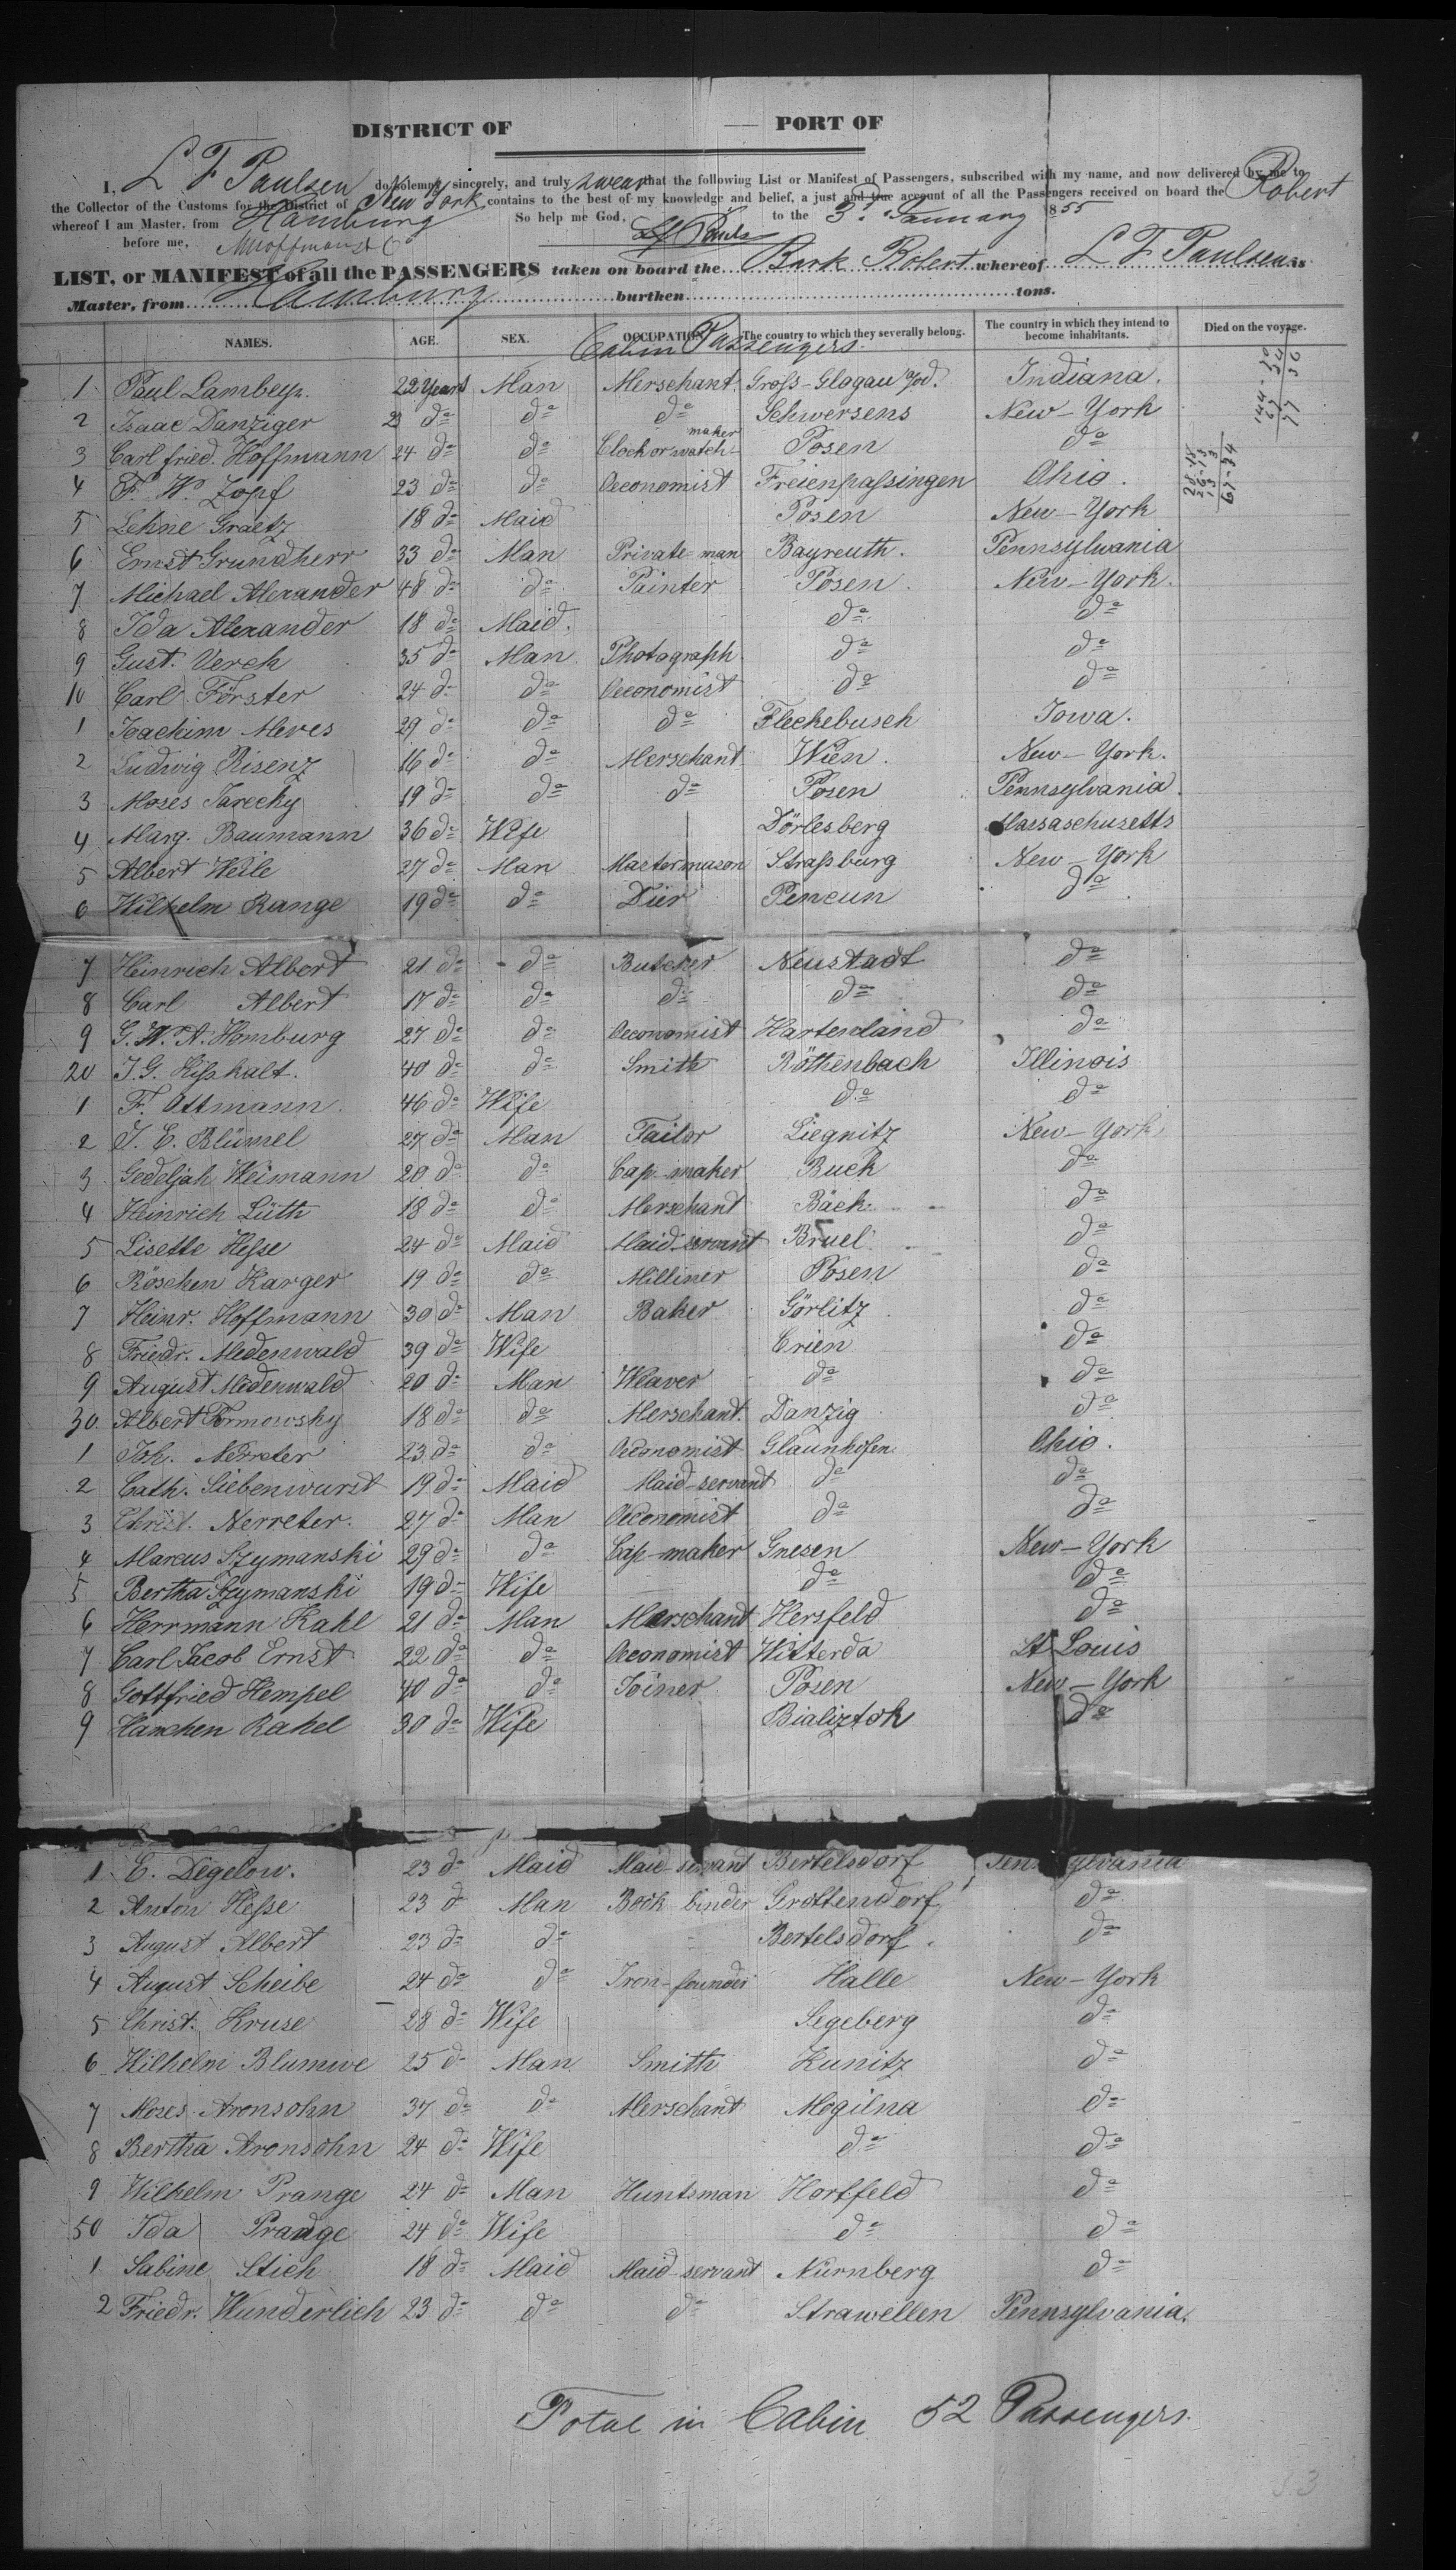 DISTRICT OF — PORT OF
I, L F Paulsen do solemnly, sincerely, and truly swear that the following List or Manifest of Passengers, subscribed with my name, and now delivered by me to
the Collector of the Customs for the District of New York contains to the best of my knowledge and belief, a just and true account of all the Passengers received on board the Robert
whereof I am Master, from Hamburg So help me God, to the 3d January 1855
before me,
LIST, or MANIFEST of all the PASSENGERS taken on board the Bark Robert whereof L F Paulsen is
Master, from Hamburg burthen tons.
NAMES. AGE. SEX. OCCUPATION The country to which they severally belong. The country in which they intend to become inhabitants. Died on the voyage.
Cabin Passengers.
1 Paul 22 Years Man Merschant Gross-Glogau Indiana.
2 Isaac Danziger 23 do do do Schwersens New-York
3 Carl fried. Hoffmann 24 do do Clock or watch-maker Posen do
4 F. W. Zopf 23 do do Oeconomist Freienpassingen Ohio.
5 Lehne Graetz 18 do Maid Posen New-York
6 Ernst Grundherr 33 do Man Private-man Bayreuth. Pennsylwania
7 Michael Alexander 48 do do Painter Posen. New-York.
8 Ida Alexander 18 do Maid. do do
9 Gust. Verch 35 do Man Photograph. do do
10 Carl Förster 24 do do Oeconomist do do
1 Joachim Meves 29 do do do Fleckebusch Iowa.
2 Ludwig Risenz 16 do do Merschant Wien. New-York.
3 Moses Jarecky 19 do do do Posen Pennsylvania.
4 Marg. Baumann 36 do Wife Dörlesberg Massaschusetts
5 Albert Weile 27 do Man Master mason Strassburg New-York
6 Wilhelm Range 19 do do Dier Pencun do
7 Heinrich Albert 21 do do Butcher Neustadt do
8 Carl Albert 17 do do do do do
9 G. W. A. Homburg 27 do do Oeconomist Hartenland do
20 J. G. 40 do do Smith Röthenbach Illinois
1 F. Ottmann. 46 do Wife do do
2 J. E. Blümel 27 do Man Tailor Liegnitz New-York
3 Gedeljah Weimann 20 do do Cap-maker Buck do
4 Heinrich Lüth 18 do do Merschant Bäck do
5 Lisette Hesse 24 do Maid Maid-servant Bruel do
6 Röschen Karger 19 do do Milliner Posen do
7 Heinr. Hoffmann 30 do Man Baker Görlitz do
8 Friedr. Medenwald 39 do Wife Crien do
9 August Medenwald 20 do Man Weaver do do
30 Albert Tormowsky 18 do do Merschant. Danzig do
1 Joh. Nerreter 23 do do Oeconomist Glaunhofen Ohio.
2 Cath. Siebenwurst 19 do Maid Maid-servant do do
3 Christ. Nerreter. 27 do Man Oeconomist do do
4 Marcus Szymanski 29 do do Cap-maker Gnesen New-York
5 Bertha Szymanski 19 do Wife do do
6 Herrmann Kahl 21 do Man Merschant Hersfeld do
7 Carl Jacob Ernst 22 do do Oeconomist Witterda St Louis
8 Gottfried Hempel 40 do do Joiner Posen New-York
9 Hanchen Rahel 30 do Wife Bializtok do
1 E. Degelow. 23 do Maid Maid-servant Bertelsdorf Pennsylvania
2 Anton Hesse 23 do Man Book-binder Grottendorf do
3 August Albert 23 do do Bertelsdorf. do
4 August Scheibe 24 do do Iron-founder Halle New-York
5 Christ. Kruse 28 do Wife Segeberg do
6 Wilhelm Blumwe 25 do Man Smith Kunitz do
7 Moses Aronsohn 37 do do Merschant Mogilna do
8 Bertha Aronsohn 24 do Wife do do
9 Wilhelm Prange 24 do Man Huntsman Hortfeld do
50 Ida Prange 24 do Wife do do
1 Sabine Stich 18 do Maid Maid-servant Nürnberg do
2 Friedr. Wunderlich 23 do do do Strawellen Pennsylvania.
Total in Cabin 52 Passengers.